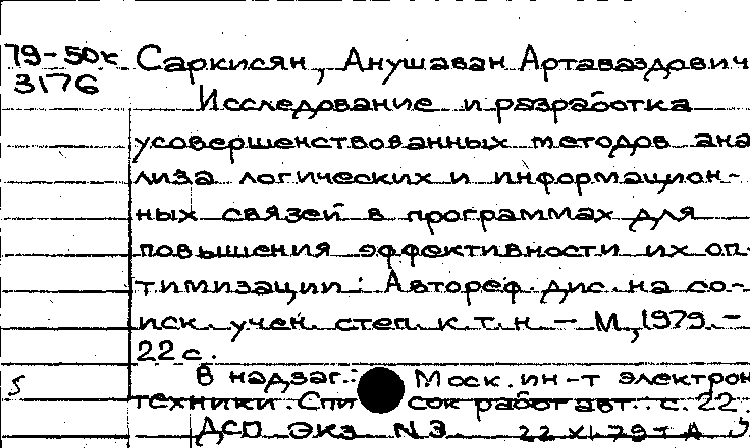 79-50к Саркисян, Анушаван Артаваздович
3176
Исследование и разработка
усовершенствованных методов ана
лиза логических и информацион-
ных связей в программах для
повышения эффективности их оп-
тимизации: Автореф. дис. на со-
иск. учен. степ. к.т.н. — М., 1979. —
22 с.
В надзаг.: Моск. ин-т электрон
техники. Список работ авт.: с. 22.
ДСП экз N 3. 22 XI 79 г А